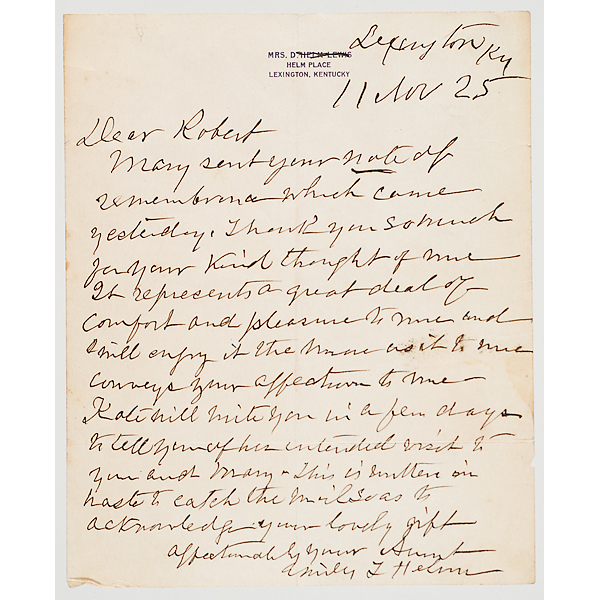 Lexington Ky
MRS. D. HELM LEWIS
HELM PLACE
LEXINGTON, KENTUCKY
11 Nov 25
Dear Robert
Mary sent your note of
remembrance which came
yesterday. I thank you so much
for your kind thought of me
It represents a great deal of
comfort and pleasure to me and
I will enjoy it the more as it to me
conveys your affection to me
Kate will write you in a few days
to tell you of her intended visit to
you and Mary - This is written in
haste to catch the mail so as to
acknowledge your lovely gift
affectionately your Aunt
Emily T Helm